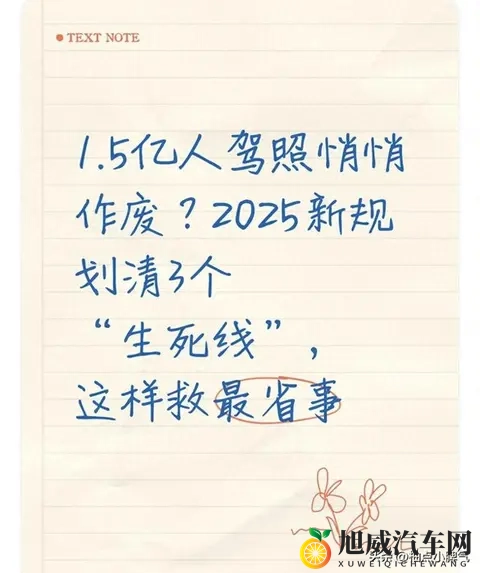 TEXT NOTE
1.5亿人驾照悄悄
作废？2025新规
划清3个
“生死线”，
这样救最省事
旭威汽车网
XUWEIQICHEWANG